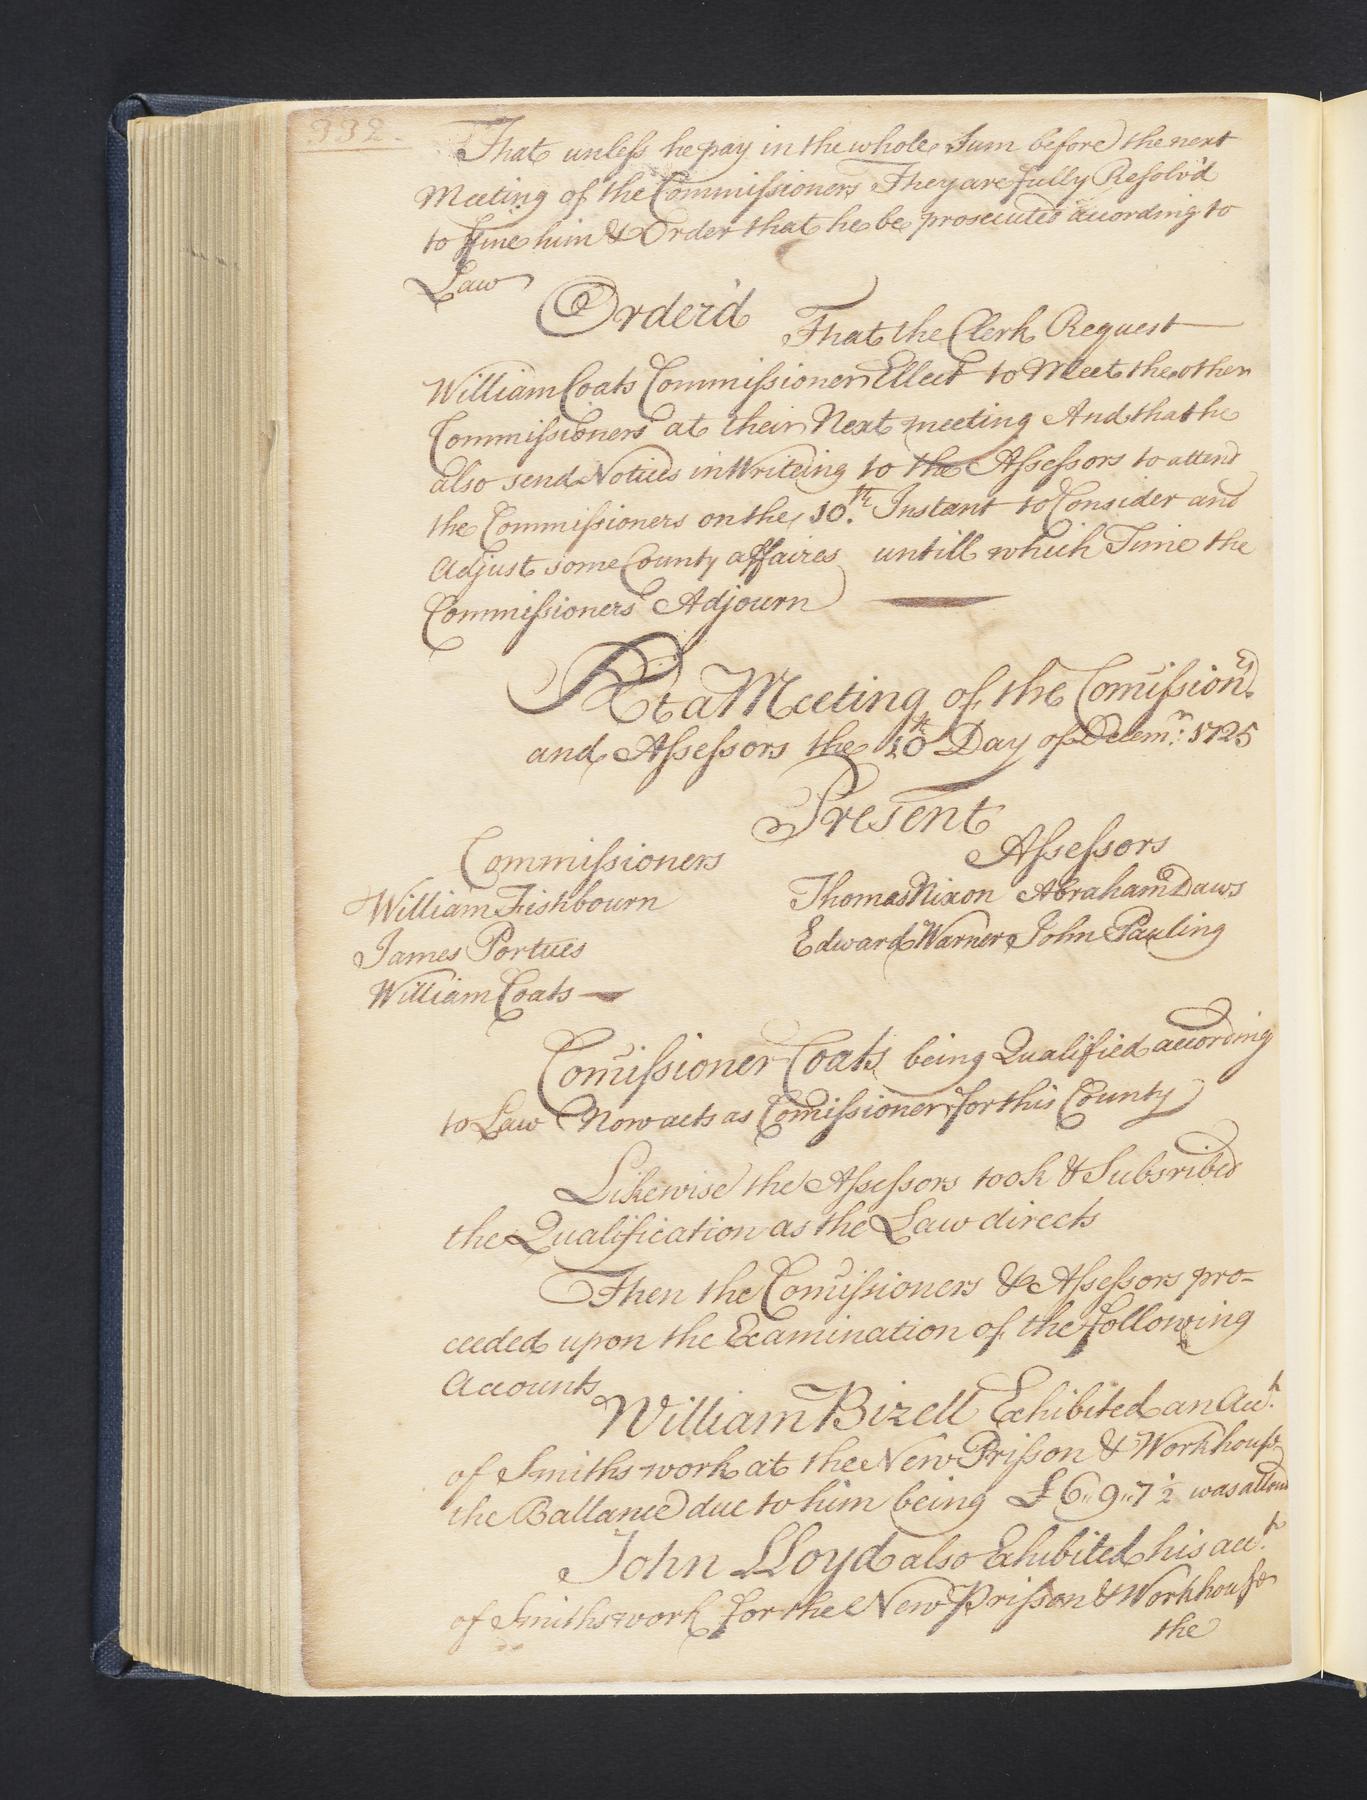 332.
That unless he pay in the whole Sum before the next
Meeting of the Commissioners They are fully Resolv'd
to ffine him & Order that he be prosecuted according to
Law
Order'd That the Clerk Request
William Coats Commissioner Ellect to Meet the other
Commissioners at their Next meeting And that he
also send Notices in Writeing to the Assessors to attend
the Commissioners on the 10.th Instant to Consider and
Adjust some County affaires untill which Time the
Commissioners Adjourn
At a Meeting of the Comission.rs
and Assessors the 10th Day of Decem.r: 1725
Present
Commissioners
Assessors
William Fishbourn
Thomas Nixon Abraham Daws
James Portues
Edward Warner John Pauling
William Coats
Comissioner Coats being Qualified according
to Law Now acts as Comissioner for this County
Likewise the Assessors took & Subsribed
the Qualification as the Law directs
Then the Comissioners & Assessors pro-
ceeded upon the Examination of the following
Accounts
William Bizell Exhibited an Acc.t
of Smiths work at the New Prisson & Workhouse
the Ballance due to him being £6"9"7½ was allowd
John Lloyd also Exhibited his acc.t
of Smiths work for the New Prisson & Workhouse
the